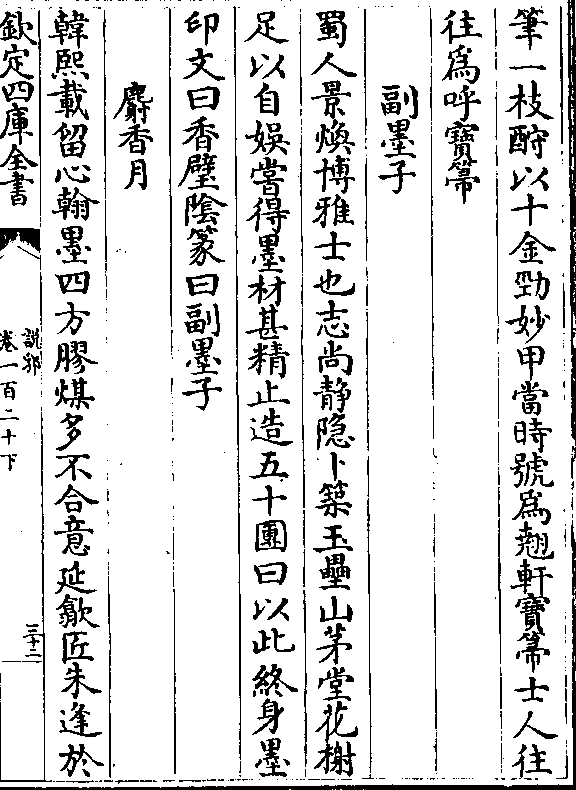 筆一枝酧以十金勁妙甲當時號為翹軒寶箒士人往
往為呼寶箒
副墨子
蜀人景煥博雅士也志尚静隠卜築玉壘山茅堂花榭
足以自娛嘗得墨材甚精止造五十團曰以此終身墨
印文曰香璧陰篆曰副墨子
麝香月
韓熙載留心翰墨四方膠煤多不合意延歙匠朱逢於
欽定四庫全書
說郛
卷一百二十下
三十二